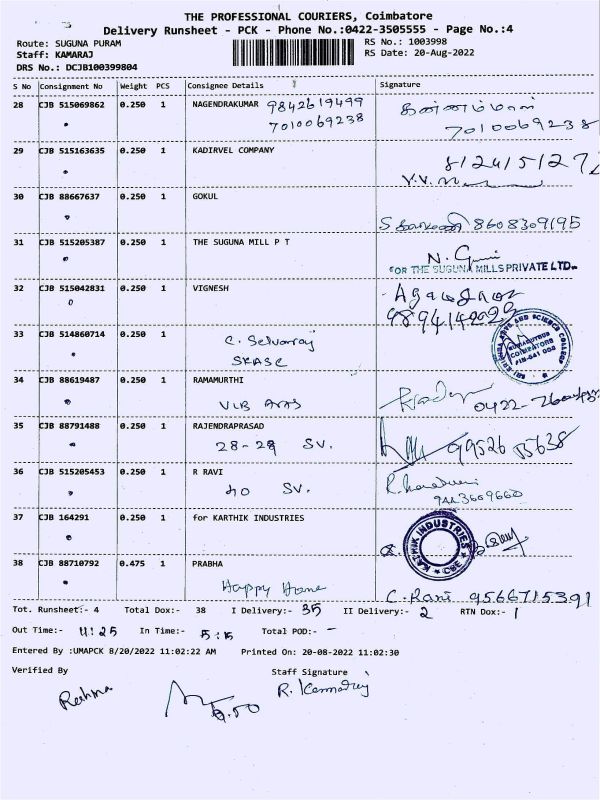 THE PROFESSIONAL COURIERS, Coimbatore
Delivery Runsheet - PCK - Phone No.:0422-3505555 - Page No.:4
Route: SUGUNA PURAM
RS No.: 1003998
Staff: KAMARAJ
RS Date: 20-Aug-2022
DRS No.: DCJB100399804
S No Consignment No Weight PCS Consignee Details Signature
28 CJB 515069862 0.250 1 NAGENDRAKUMAR 9842619499
7010069238 7010069238
29 CJB 515163635 0.250 1 KADIRVEL COMPANY
30 CJB 88667637 0.250 1 GOKUL
8608309195
31 CJB 515205387 0.250 1 THE SUGUNA MILL P T
FOR THE SUGUNA MILLS PRIVATE LTD.
32 CJB 515042831 0.250 1 VIGNESH
33 CJB 514860714 0.250 1 C. Selvaraj
SKASC
34 CJB 88619487 0.250 1 RAMAMURTHI
VLB
35 CJB 88791488 0.250 1 RAJENDRAPRASAD
28-29 SV.
36 CJB 515205453 0.250 1 R RAVI
40 SV.
9443609660
37 CJB 164291 0.250 1 for KARTHIK INDUSTRIES
KARTHIK INDUSTRIES CBE
38 CJB 88710792 0.475 1 PRABHA
Happy Home C. Rani 9566715391
Tot. Runsheet:- 4 Total Dox:- 38 I Delivery:- 35 II Delivery:- 2 RTN Dox:- 1
Out Time:- 11:25 In Time:- 5:15 Total POD:- -
Entered By :UMAPCK 8/20/2022 11:02:22 AM Printed On: 20-08-2022 11:02:30
Verified By Staff Signature